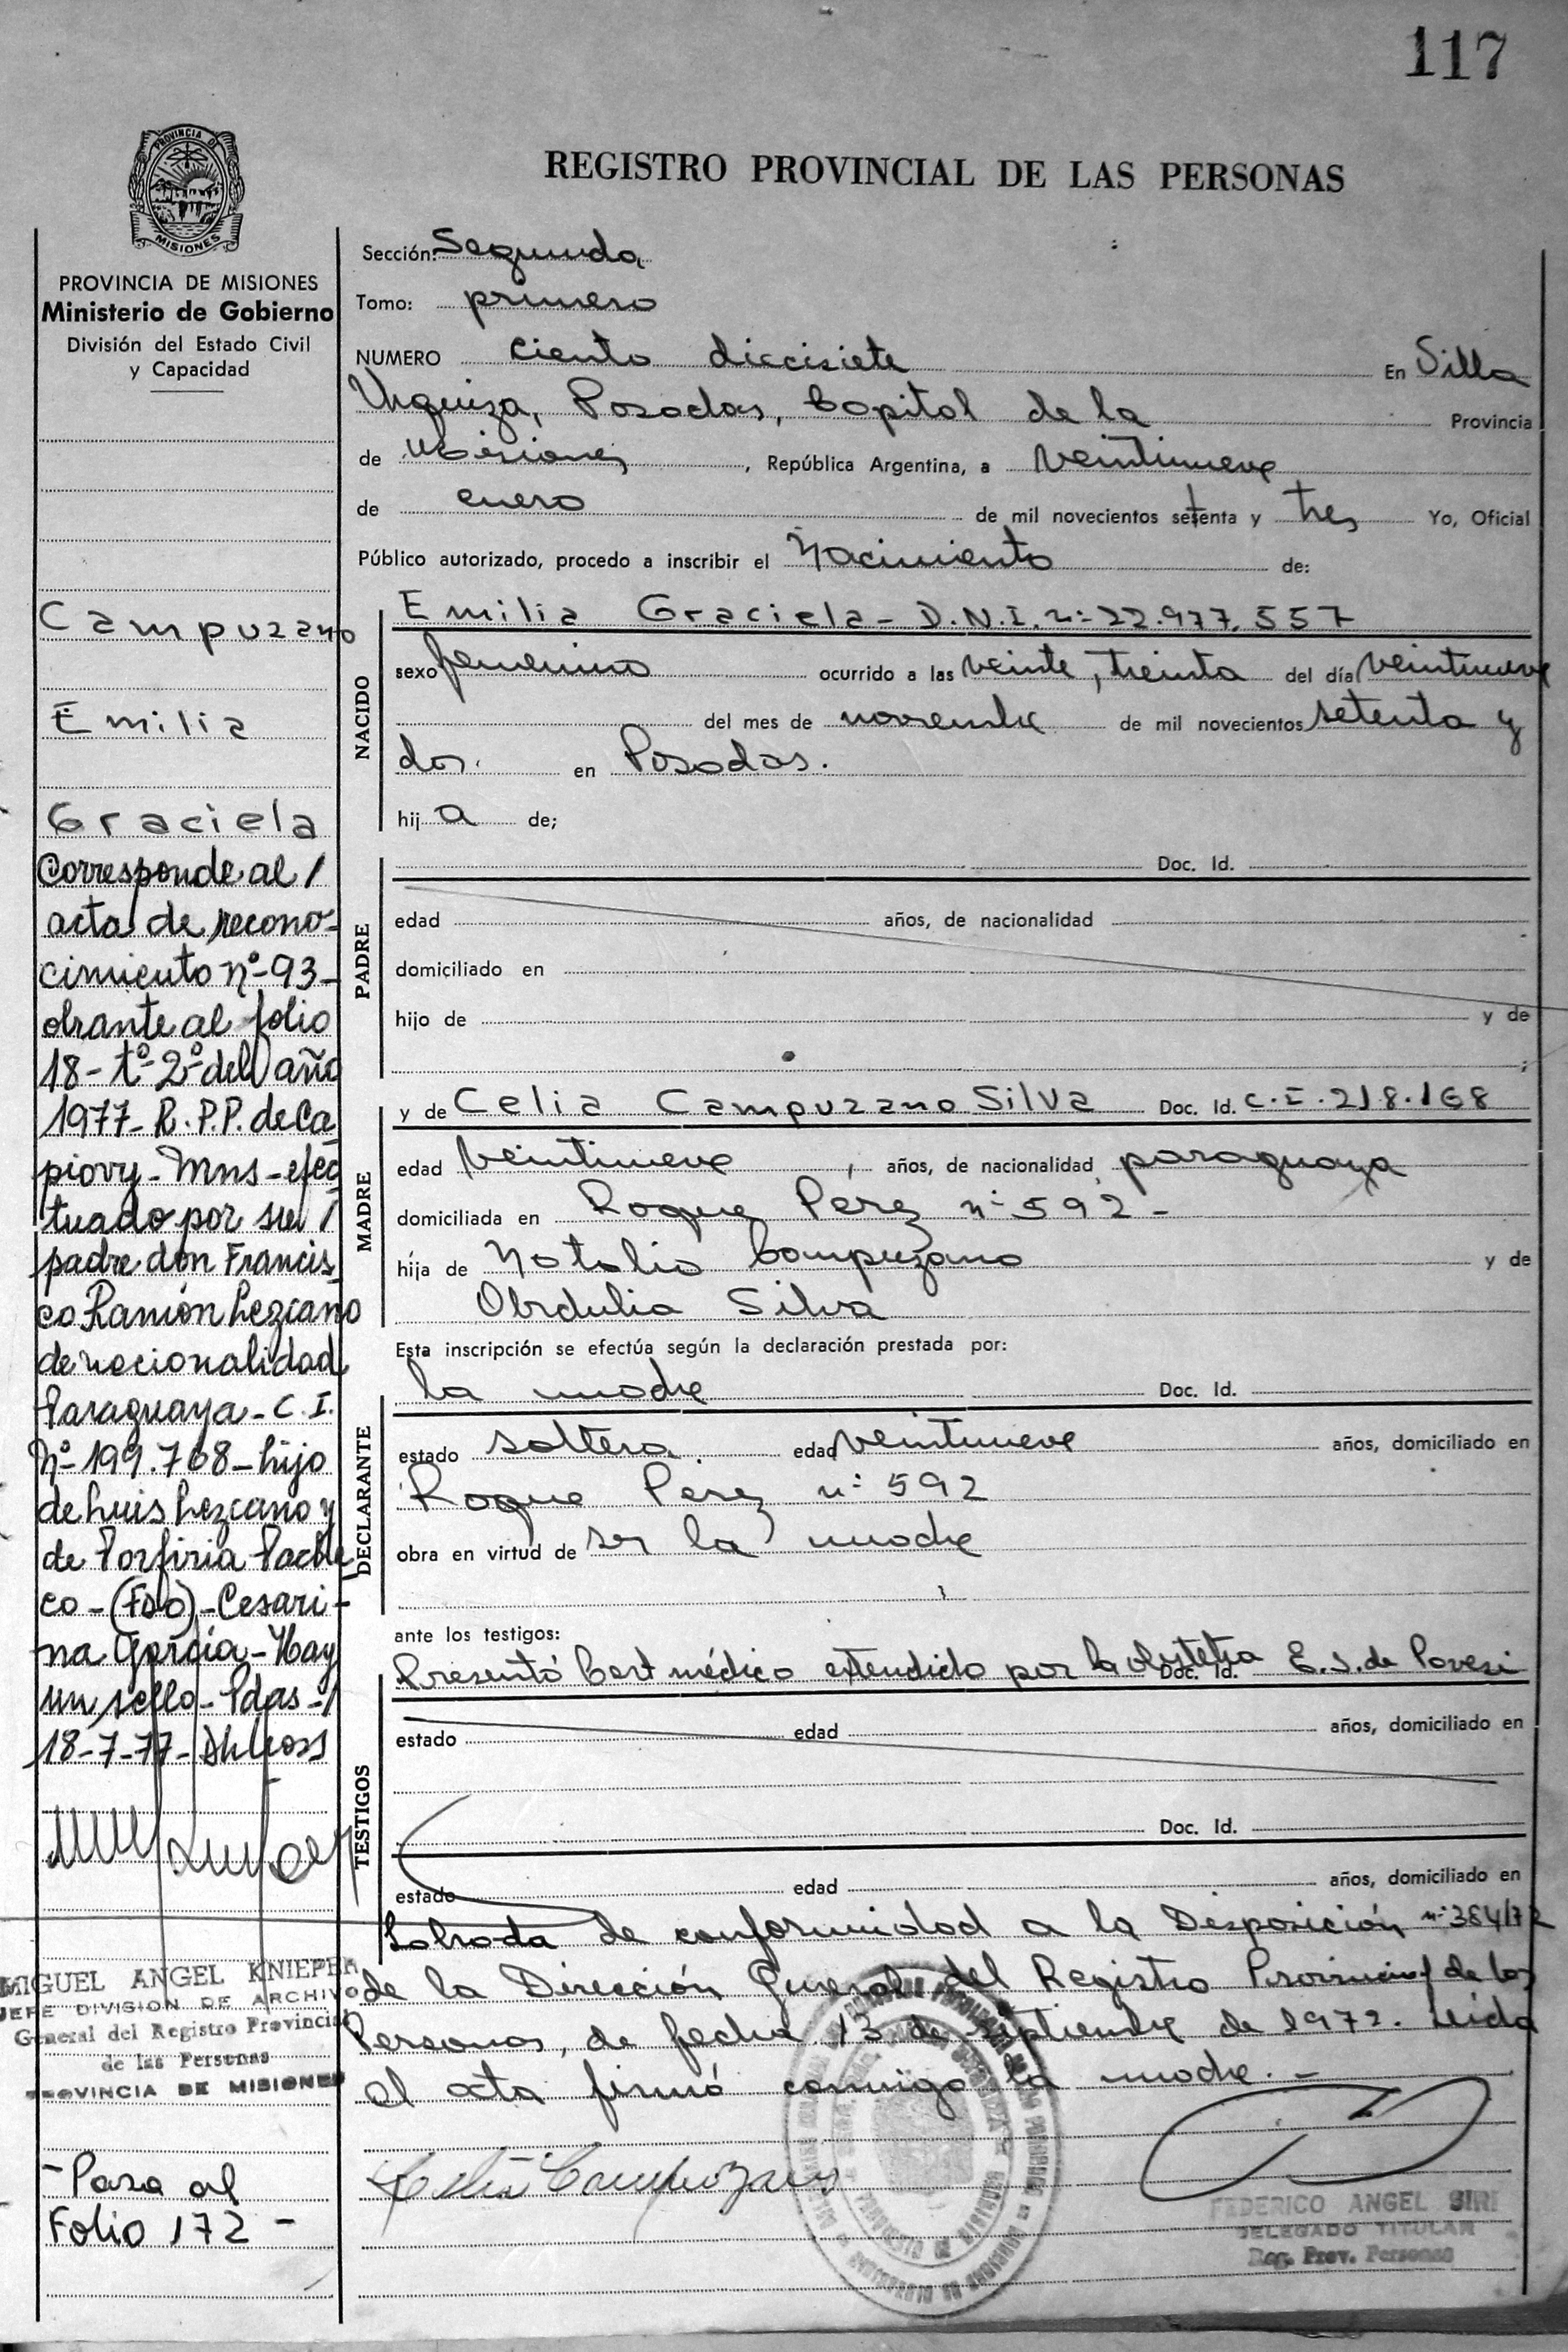 117
PROVINCIA DE
MISIONES
REGISTRO PROVINCIAL DE LAS PERSONAS
PROVINCIA DE MISIONES
Ministerio de Gobierno
División del Estado Civil
y Capacidad
Campuzano
Emilia
Graciela
Corresponde al /
acta de recono-
cimiento nº-93-
obrante al folio
18-tº-2º del año
1977-R.P.P. de Ca
piovy-Mns-efec
tuado por su /
padre don Francis
co Ramón Lezcano
de nacionalidad
Paraguaya-C.I.
Nº 199.768-hijo
de Luis Lezcano y
de Porfiria Pache
co-(FDO)-Cesari-
na García-Hay
un sello-Pdas-/
18-7-77-
MIGUEL ANGEL KNIEPER
JEFE DIVISION DE ARCHIVO
General del Registro Provincial
de las Personas
PROVINCIA DE MISIONES
-Pasa al
Folio 172-
Sección: Segunda
Tomo: primero
NUMERO ciento diecisiete En Villa
Urquiza, Posadas, Capital de la Provincia
de Misiones, República Argentina, a veintinueve
de enero de mil novecientos setenta y tres Yo, Oficial
Público autorizado, procedo a inscribir el Nacimiento de:
NACIDO
Emilia Graciela-D.N.I.nº-22.977.557
sexo femenino ocurrido a las veinte, treinta del día veintinueve
del mes de noviembre de mil novecientos setenta y
dos. en Posadas.
hij a de;
PADRE
Doc. Id.
edad años, de nacionalidad
domiciliado en
hijo de y de
;
MADRE
y de Celia Campuzano Silva Doc. Id. C.I.218.168
edad veintinueve, años, de nacionalidad paraguaya
domiciliada en Roque Pérez nº 592-
hija de Natalio Campuzano y de
Obdulia Silva
Esta inscripción se efectúa según la declaración prestada por:
DECLARANTE
la madre Doc. Id.
estado soltera edad veintinueve años, domiciliado en
Roque Pérez nº 592
obra en virtud de ser la madre
ante los testigos:
TESTIGOS
Presentó Cert médico extendido por la obstetra Doc. Id. E.S. de Pavesi
estado edad años, domiciliado en
Doc. Id.
estado edad años, domiciliado en
Labrada de conformidad a la Disposición nº 384/72
de la Dirección General del Registro Provincial de las
Personas, de fecha 13 de septiembre de 1972. Leida
el acta firmó conmigo la madre.-
Celia Campuzano
FEDERICO ANGEL SIRI
DELEGADO TITULAR
Reg. Prov. Personas